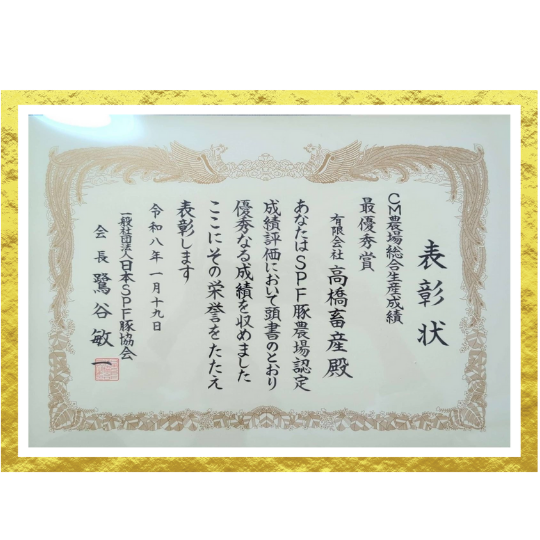 表彰状
CM農場総合生産成績
最優秀賞
有限会社 高橋畜産殿
あなたはSPF豚農場認定
成績評価において頭書のとおり
優秀なる成績を収めました
ここにその栄誉をたたえ
表彰します
令和八年一月十九日
一般社団法人日本SPF豚協会
会長 鷺谷敏一